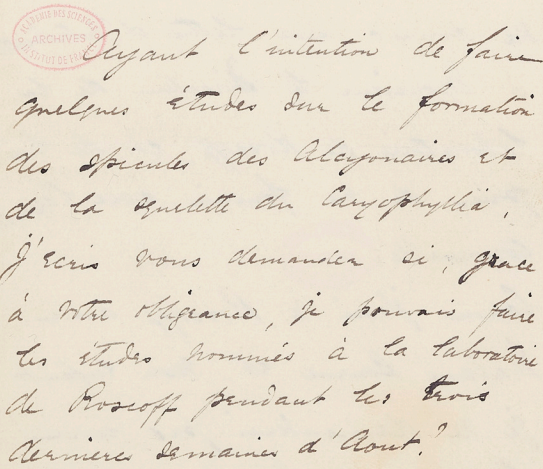 ACADÉMIE DES SCIENCES
ARCHIVES
INSTITUT DE FRANCE
Ayant l'intention de faire
quelques études sur le formation
des spicules des Alcyonaires et
de la squelette du Caryophyllia,
j'ecris vous demander si, grace
à votre obligeance, je pouvais faire
les études nommés à la laboratoire
de Roscoff pendant les trois
dernieres semaines d'Aout?